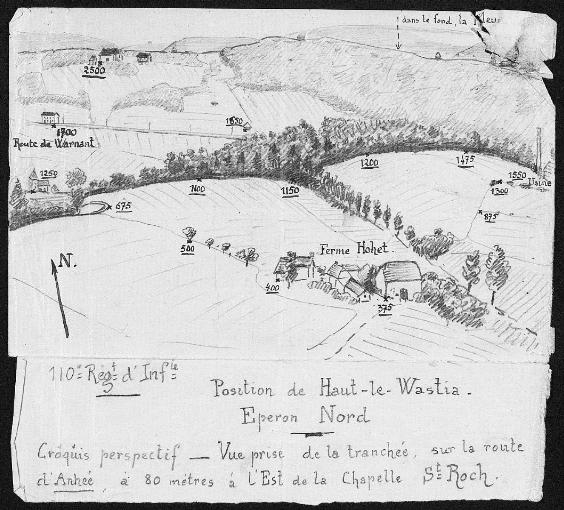 dans le fond, la Meuse
2500
1900
1880
Route de Warnant
1250
675
1100
1150
1200
1475
1550
Usine
1300
875
500
Ferme Hohet
400
375
N.
110e Régt d'Infie
Position de Haut-le-Wastia.
Eperon Nord
Croquis perspectif — Vue prise de la tranchée, sur la route
d'Anhée, à 80 mètres à l'Est de la Chapelle St Roch.